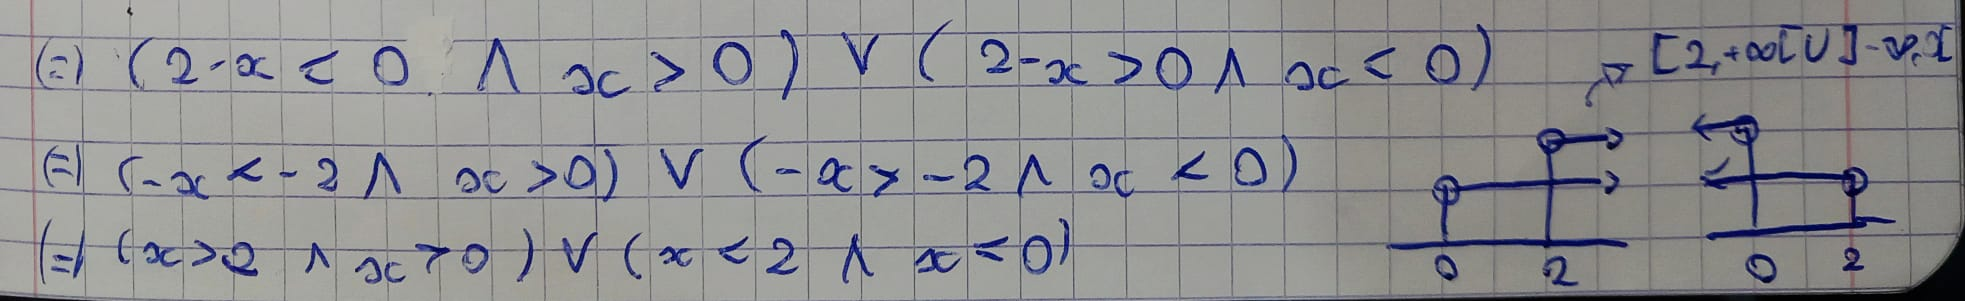 (=) (2-x < 0 ∧ x > 0) ∨ (2-x > 0 ∧ x < 0)
[2,+∞[ ∪ ]-∞,
(=) (-x < -2 ∧ x > 0) ∨ (-x > -2 ∧ x < 0)
(=) (x > 2 ∧ x > 0) ∨ (x < 2 ∧ x < 0)
0 2 0 2